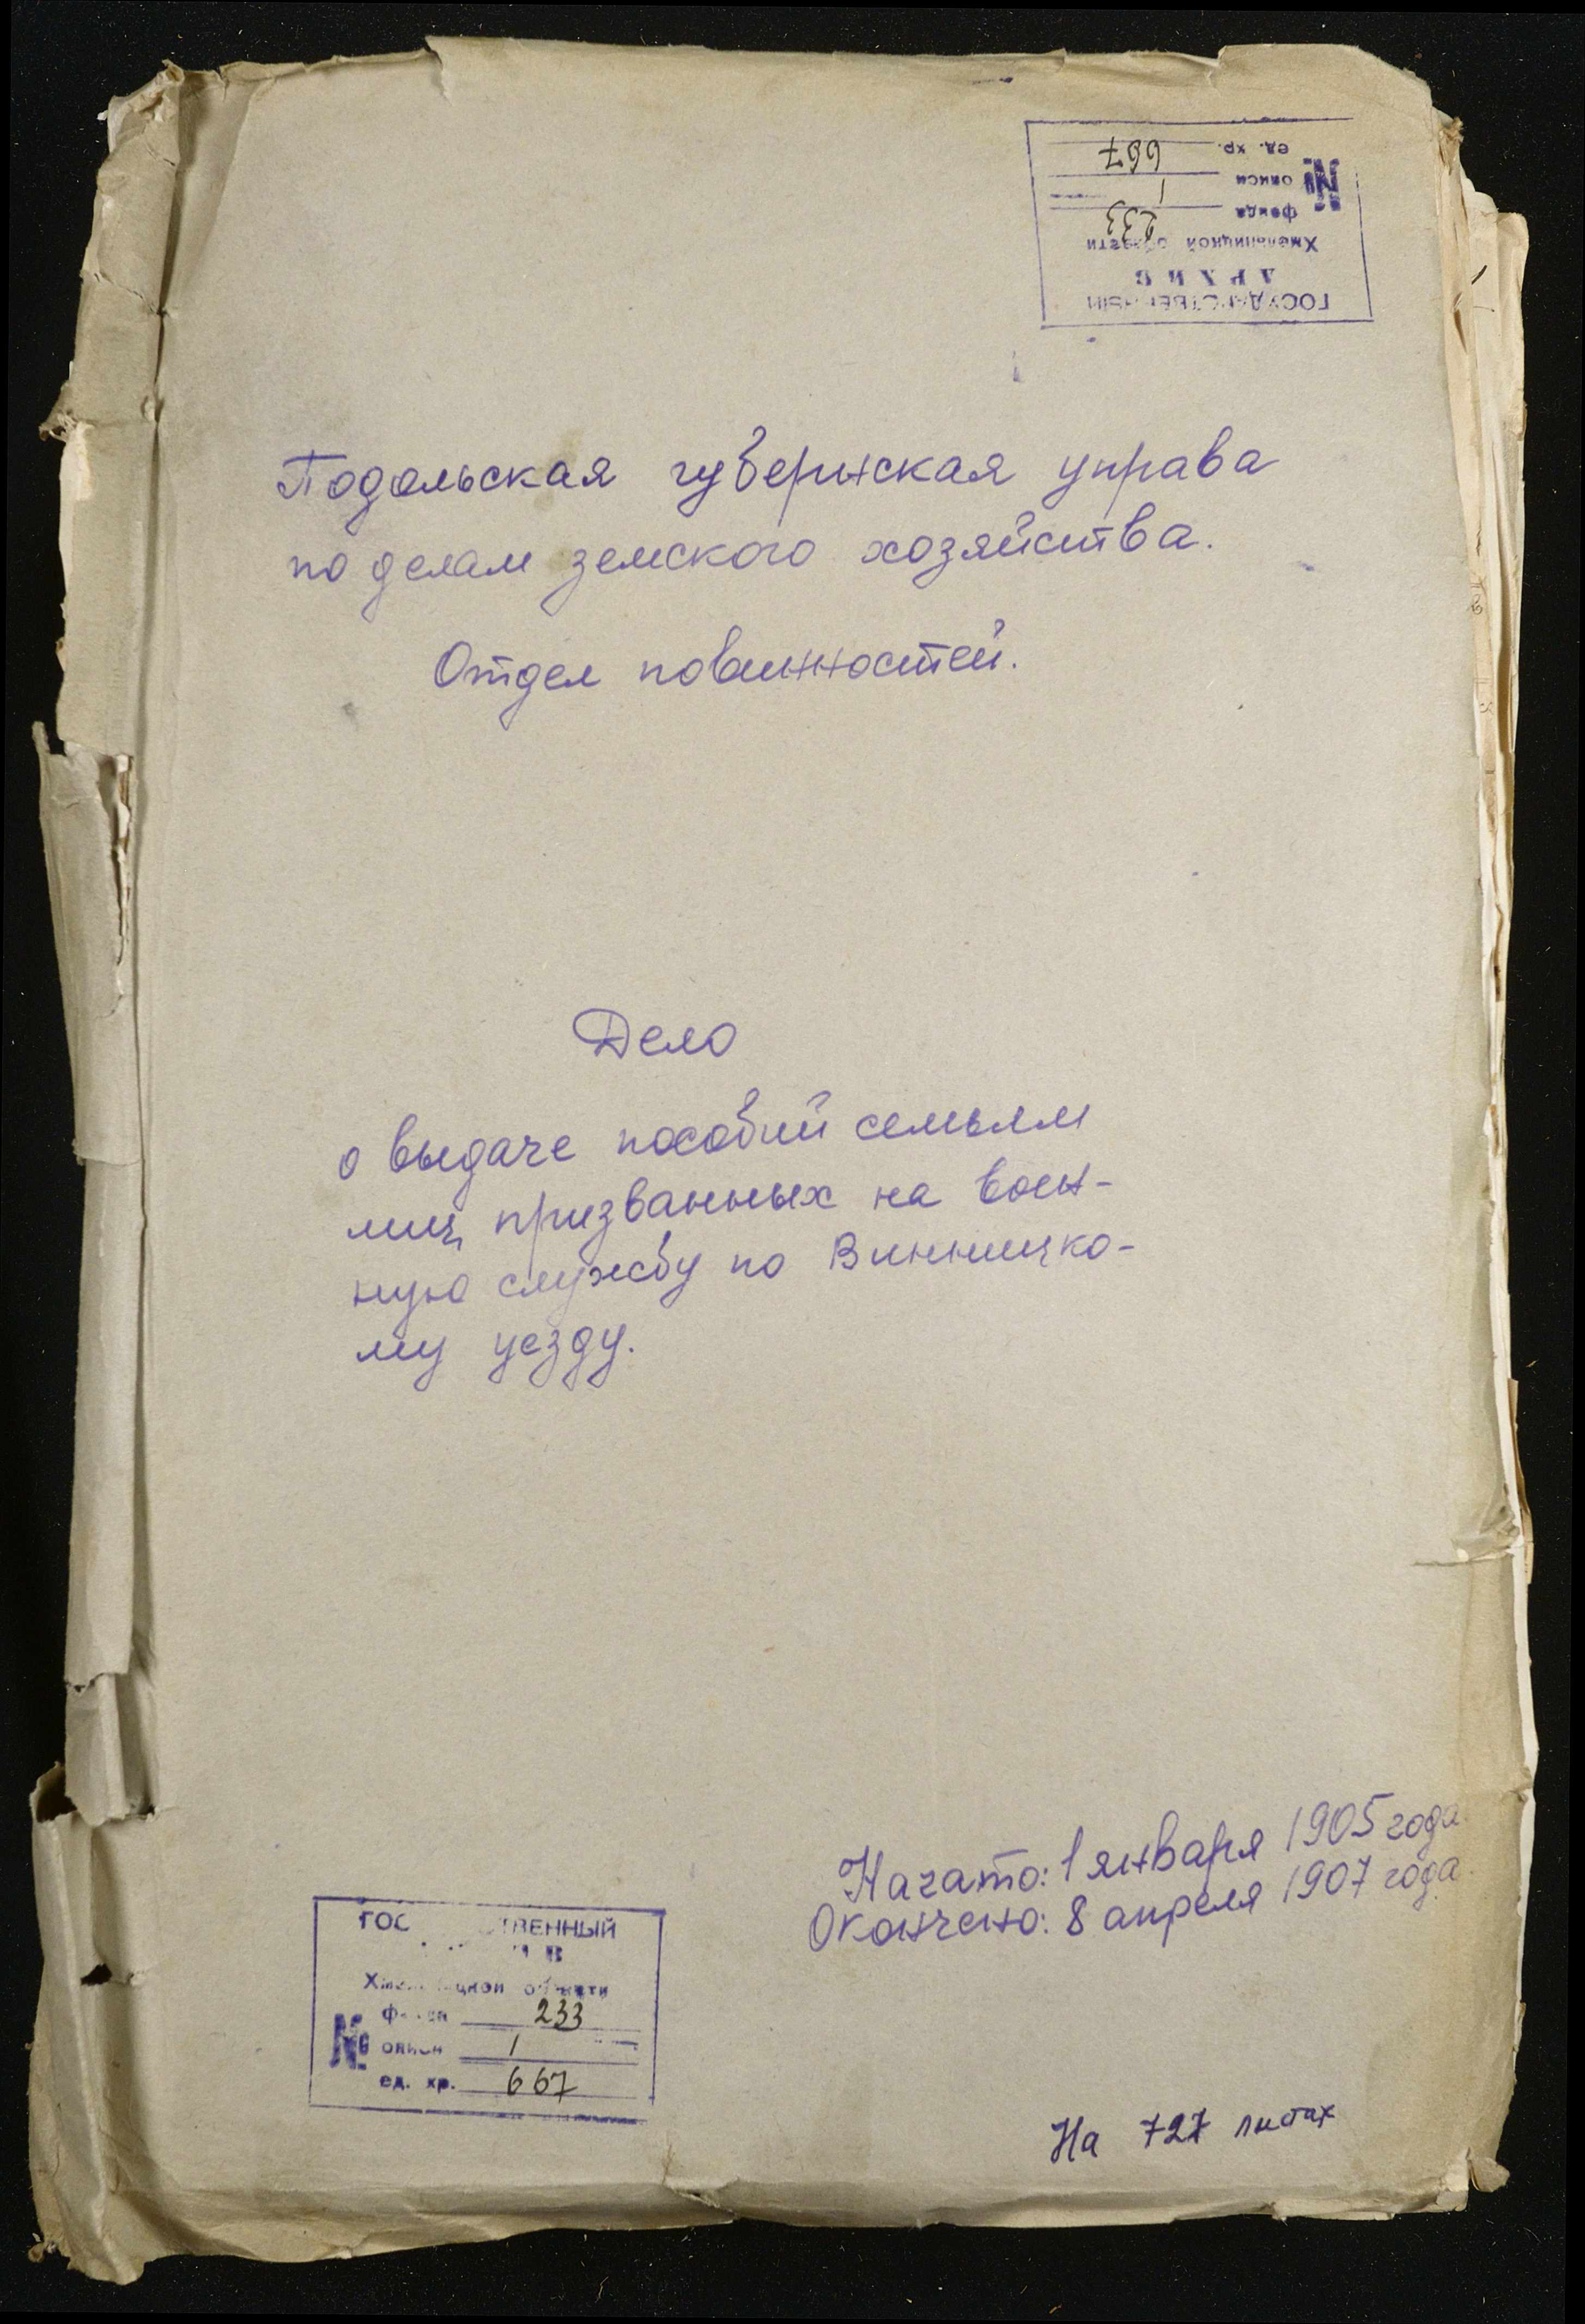 ГОСУДАРСТВЕННЫЙ
АРХИВ
Хмельницкой области
№
фонда 233
описи 1
ед. хр. 667
Подольская губернская управа
по делам земского хозяйства.
Отдел повинностей.
Дело
о выдаче пособий семьям
лиц, призванных на воен-
ную службу по Винницко-
му уезду.
Начато: 1 января 1905 года.
Окончено: 8 апреля 1907 года.
ГОСУДАРСТВЕННЫЙ
АРХИВ
Хмельницкой области
№
фонда 233
описи 1
ед. хр. 667
На 727 листах